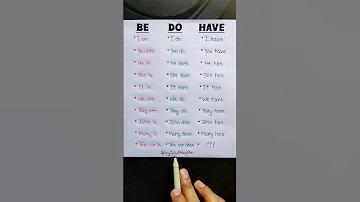 BE DO HAVE
• I am • I do • I have
• You are • You do • You have
• He is • He does • He has
• She is • She does • She has
• It is • It does • It has
• We are • We do • We have
• They are • They do • They have
• John is • John does • John has
• Mary is • Mary does • Mary has
• The car is • The car does • ???